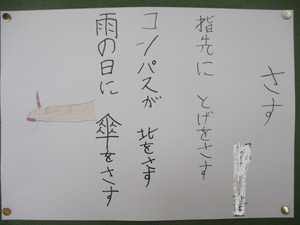 さす
指先に とげをさす
コンパスが 北をさす
雨の日に 傘をさす